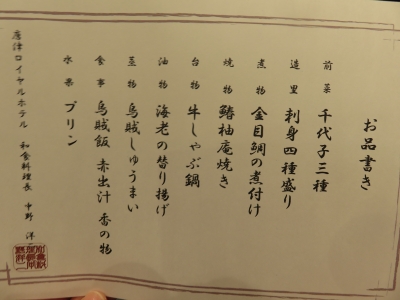 お品書き
前菜 千代子三種
造里 刺身四種盛り
煮物 金目鯛の煮付け
焼物 鰆柚庵焼き
台物 牛しゃぶ鍋
油物 海老の替り揚げ
蒸物 烏賊しゅうまい
食事 烏賊飯 赤出汁 香の物
水菓 プリン
唐津ロイヤルホテル 和食料理長 中野 洋